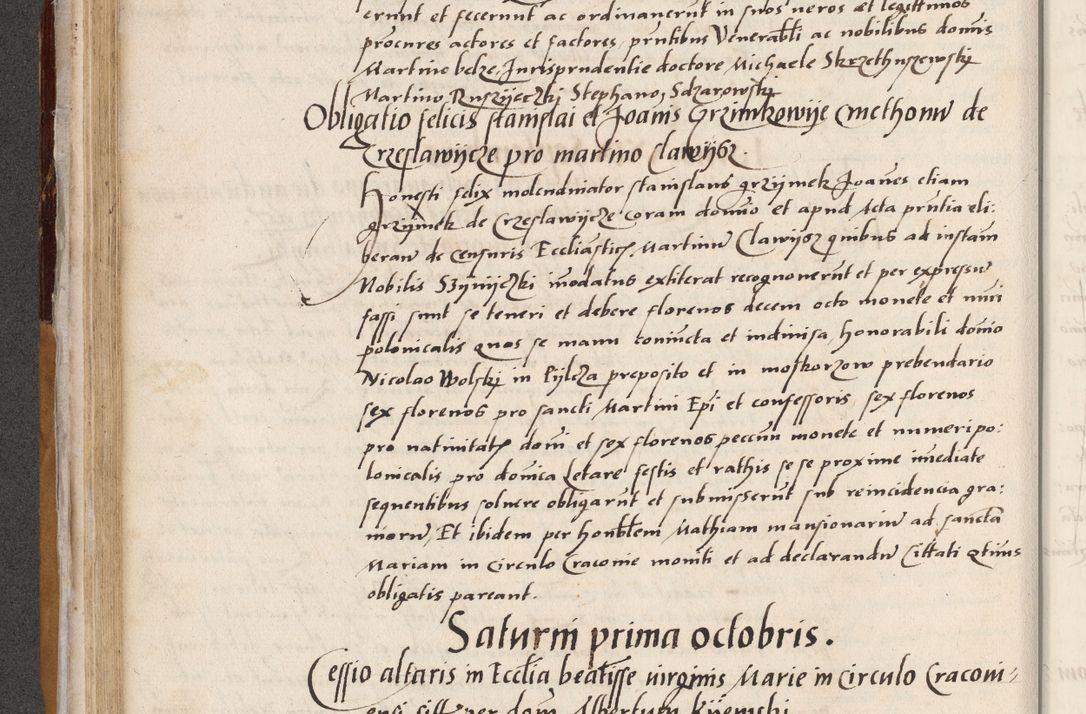 erunt et fecerunt ac ordinanerunt in suos veros et legittimos
procures actores et factores, pruntibus Venerabli ac nobilibus domis
Martino belze Jurisprudentie doctore Michaele Skrzethuszewskj
Martino Ruszijeczkj Stephano, Sdzarowskj
Obligatio felicis stanislai et Joanis Grzimkowije cmethonu de
Crzeslawijcze pro martino Clawijsz.
Honesti felix molendinator stanislaus grzijmek Joanes etiam
grzijmek de Crzeslawijcze coram domino et apud Acta pruntia eli:
beraw de censuris Ecclīastic Martinu Clawijsz quibus ad instam
Nobilis Szijnijczki inodatus extiterat recognoverunt et per expressu
fassi sunt se teneri et debere florenos decem octo monete et nūri
polonicalis quos se manu coniuncta et indivisa, honorabili domio
Nicolao Wolskj in Pijlcza preposito et in moskorzow prebendario
sex florenos pro sancti Martini Epi et confessoris, sex florenos
pro nativitat domi et sex florenos peccuu monete et numeri po:
lonicalis pro domīca Letare festis et rathis se se proxime imediate
sequentibus solvere obligarunt et submisserunt sub reincidencia gra:
moru, Et ibidem per honblem Mathiam mansionariu ad sanctā
Mariam in Circulo Cracovie moniti et ad declarandu Cittati qtinus
obligatis pareant.
Saturni prima octobris.
Cessio altaris in Ecclīa beatisse virginis Marie in Circulo Cracovi-
ensi per dom Albertum Kijenski